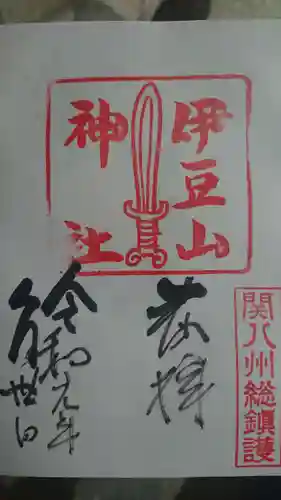 伊豆山
神社
奉拝
関八州総鎮護
令和元年